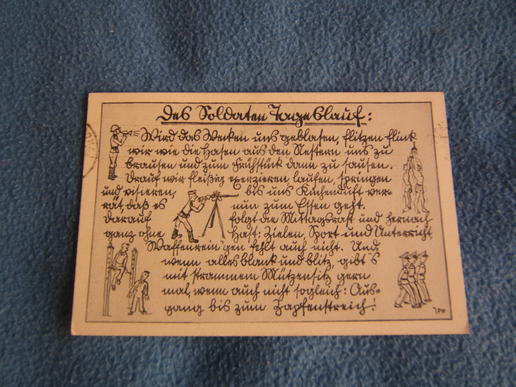 Des Soldaten Tageslauf:
Wird das Wecken uns geblasen, flitzen flink
wir wie die Hasen aus den Nestern uns zu
brausen und zum Frühstück dann zu sausen.
Drauf wir fleißig exerzieren laufen, springen
und visieren, bis uns Küchenduft ver-
rät, daß es nun zum Essen geht.
darauf folgt die Mittagsrast und hernach
ganz ohne Hast: Zielen, Sport und Unterricht
Waffenrein'gen fehlt auch nicht. Und
wenn alles blank und blitz, gibt's
mit strammem Mützensitz, gern
mal, wenn auch nicht sogleich: Aus-
gang bis zum Zapfenstreich!